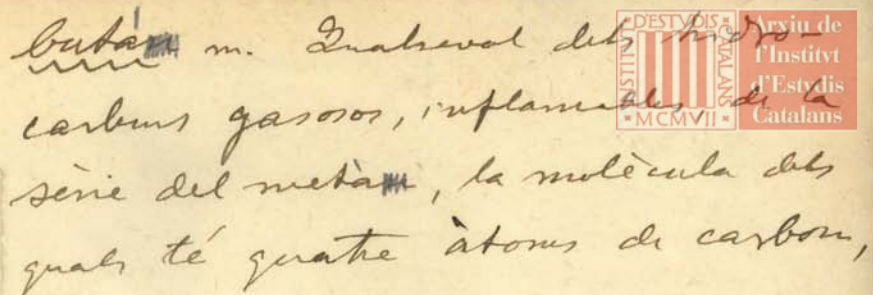 butà m. Qualsevol dels hidro-
carburs gasosos, inflamables, de la
sèrie del metà, la molècula dels
quals té quatre àtoms de carboni,
D'ESTVDIS
INSTITVT
CATALANS
MCMVII
Arxiu de
l'Institvt
d'Estvdis
Catalans